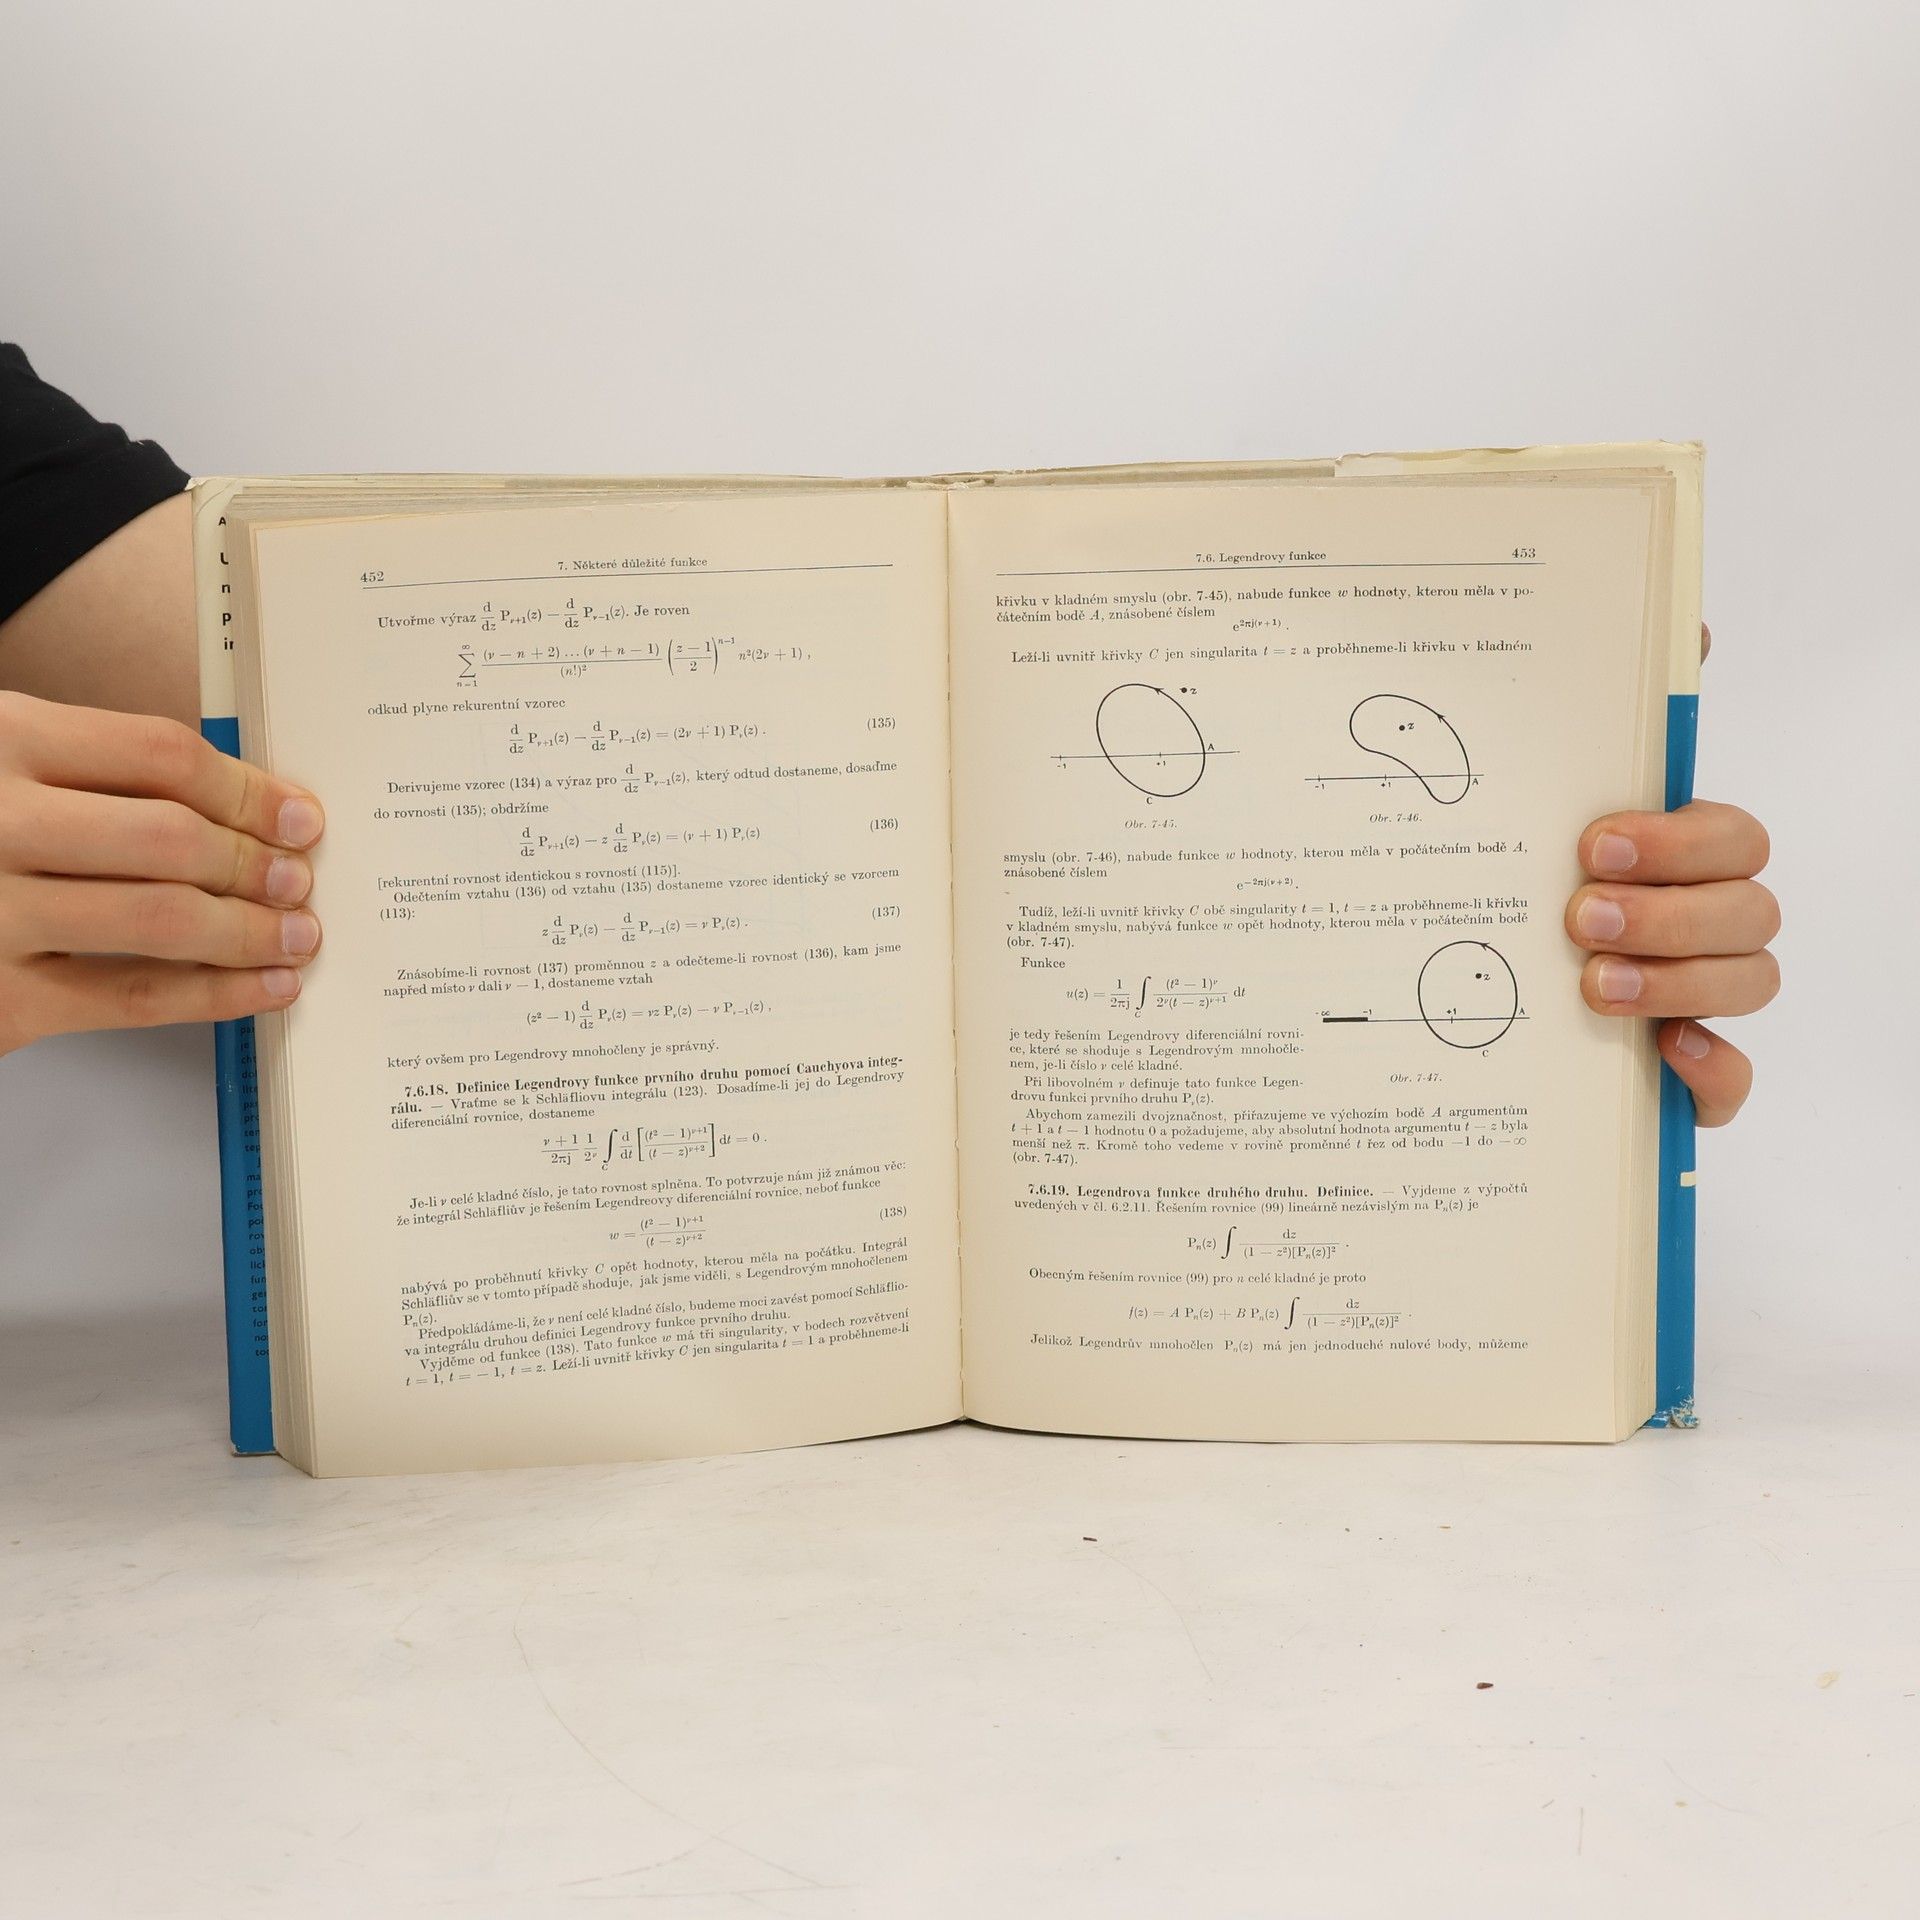 452
7. Některé důležité funkce
Utvořme výraz d/dz P_{ν+1}(z) − d/dz P_{ν−1}(z). Je roven
∑_{n=1}^{∞} (ν − n + 2) … (ν + n − 1) / (n!)² ((z − 1)/2)^{n−1} n²(2ν + 1) ,
odkud plyne rekurentní vzorec
d/dz P_{ν+1}(z) − d/dz P_{ν−1}(z) = (2ν + 1) P_ν(z) . (135)
Derivujeme vzorec (134) a výraz pro d/dz P_{ν−1}(z), který odtud dostaneme, dosaďme
do rovnosti (135); obdržíme
d/dz P_{ν+1}(z) − z d/dz P_ν(z) = (ν + 1) P_ν(z) (136)
[rekurentní rovnost identickou s rovností (115)].
Odečtením vztahu (136) od vztahu (135) dostaneme vzorec identický se vzorcem
(113):
z d/dz P_ν(z) − d/dz P_{ν−1}(z) = ν P_ν(z) . (137)
Znásobíme-li rovnost (137) proměnnou z a odečteme-li rovnost (136), kam jsme
napřed místo ν dali ν − 1, dostaneme vztah
(z² − 1) d/dz P_ν(z) = νz P_ν(z) − ν P_{ν−1}(z) ,
který ovšem pro Legendrovy mnohočleny je správný.
7.6.18. Definice Legendrovy funkce prvního druhu pomocí Cauchyova integ-
rálu. — Vraťme se k Schläfliovu integrálu (123). Dosadíme-li jej do Legendrovy
diferenciální rovnice, dostaneme
(ν + 1)/(2πj) 1/2^ν ∫_C d/dt [(t² − 1)^{ν+1}/(t − z)^{ν+2}] dt = 0 .
Je-li ν celé kladné číslo, je tato rovnost splněna. To potvrzuje nám již známou věc:
že integrál Schläfliův je řešením Legendreovy diferenciální rovnice, neboť funkce
w = (t² − 1)^{ν+1}/(t − z)^{ν+2} (138)
nabývá po proběhnutí křivky C opět hodnoty, kterou měla na počátku. Integrál
Schläfliův se v tomto případě shoduje, jak jsme viděli, s Legendrovým mnohočlenem
P_n(z).
Předpokládáme-li, že ν není celé kladné číslo, budeme moci zavést pomocí Schläflio-
va integrálu druhou definici Legendrovy funkce prvního druhu.
Vyjděme od funkce (138). Tato funkce w má tři singularity, v bodech rozvětvení
t = 1, t = − 1, t = z. Leží-li uvnitř křivky C jen singularita t = 1 a proběhneme-li
7.6. Legendrovy funkce
453
křivku v kladném smyslu (obr. 7-45), nabude funkce w hodnoty, kterou měla v po-
čátečním bodě A, znásobené číslem
e^{2πj(ν+1)} .
Leží-li uvnitř křivky C jen singularita t = z a proběhneme-li křivku v kladném
z
−1
+1
A
C
Obr. 7-45.
z
−1
+1
A
Obr. 7-46.
smyslu (obr. 7-46), nabude funkce w hodnoty, kterou měla v počátečním bodě A,
znásobené číslem
e^{−2πj(ν+2)} .
Tudíž, leží-li uvnitř křivky C obě singularity t = 1, t = z a proběhneme-li křivku
v kladném smyslu, nabývá funkce w opět hodnoty, kterou měla v počátečním bodě
(obr. 7-47).
Funkce
u(z) = 1/(2πj) ∫_C (t² − 1)^ν/(2^ν(t − z)^{ν+1}) dt
je tedy řešením Legendrovy diferenciální rovni-
ce, které se shoduje s Legendrovým mnohočle-
nem, je-li číslo ν celé kladné.
Při libovolném ν definuje tato funkce Legen-
drovu funkci prvního druhu P_ν(z).
z
−∞
−1
+1
A
C
Obr. 7-47.
Abychom zamezili dvojznačnost, přiřazujeme ve výchozím bodě A argumentům
t + 1 a t − 1 hodnotu 0 a požadujeme, aby absolutní hodnota argumentu t − z byla
menší než π. Kromě toho vedeme v rovině proměnné t řez od bodu −1 do −∞
(obr. 7-47).
7.6.19. Legendrova funkce druhého druhu. Definice. — Vyjdeme z výpočtů
uvedených v čl. 6.2.11. Řešením rovnice (99) lineárně nezávislým na P_n(z) je
P_n(z) ∫ dz/((1 − z²)[P_n(z)]²) .
Obecným řešením rovnice (99) pro n celé kladné je proto
f(z) = A P_n(z) + B P_n(z) ∫ dz/((1 − z²)[P_n(z)]²) .
Jelikož Legendrův mnohočlen P_n(z) má jen jednoduché nulové body, můžeme